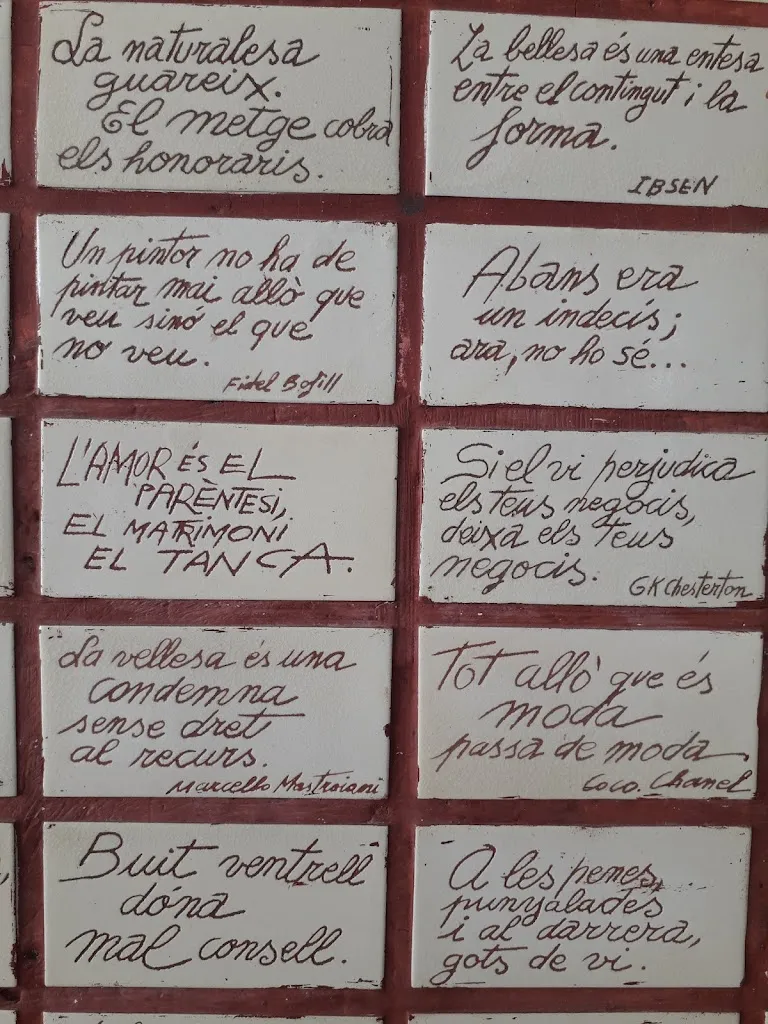 La naturalesa
guareix.
El metge cobra
els honoraris.
La bellesa és una entesa
entre el contingut i la
forma.
IBSEN
Un pintor no ha de
pintar mai allò que
veu sinó el que
no veu.
Fidel Bofill
Abans era
un indecís;
ara, no ho sé...
L'AMOR ÉS EL
PARÈNTESI,
EL MATRIMONI
EL TANCA.
Si el vi perjudica
els teus negocis,
deixa els teus
negocis.
GK Chesterton
La vellesa és una
condemna
sense dret
al recurs.
Marcello Mastroiani
Tot allò que és
moda
passa de moda
Coco. Chanel
Buit ventrell
dóna
mal consell.
A les penes,
punyalades
i al darrera,
gots de vi.